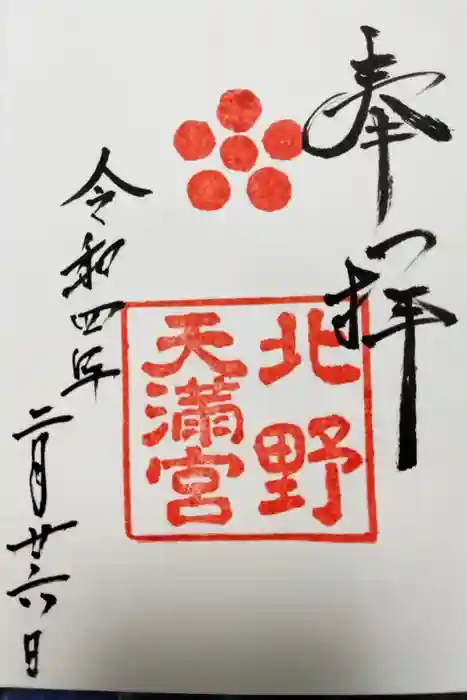 奉拝
北野
天満宮
令和四年
二月廿六日